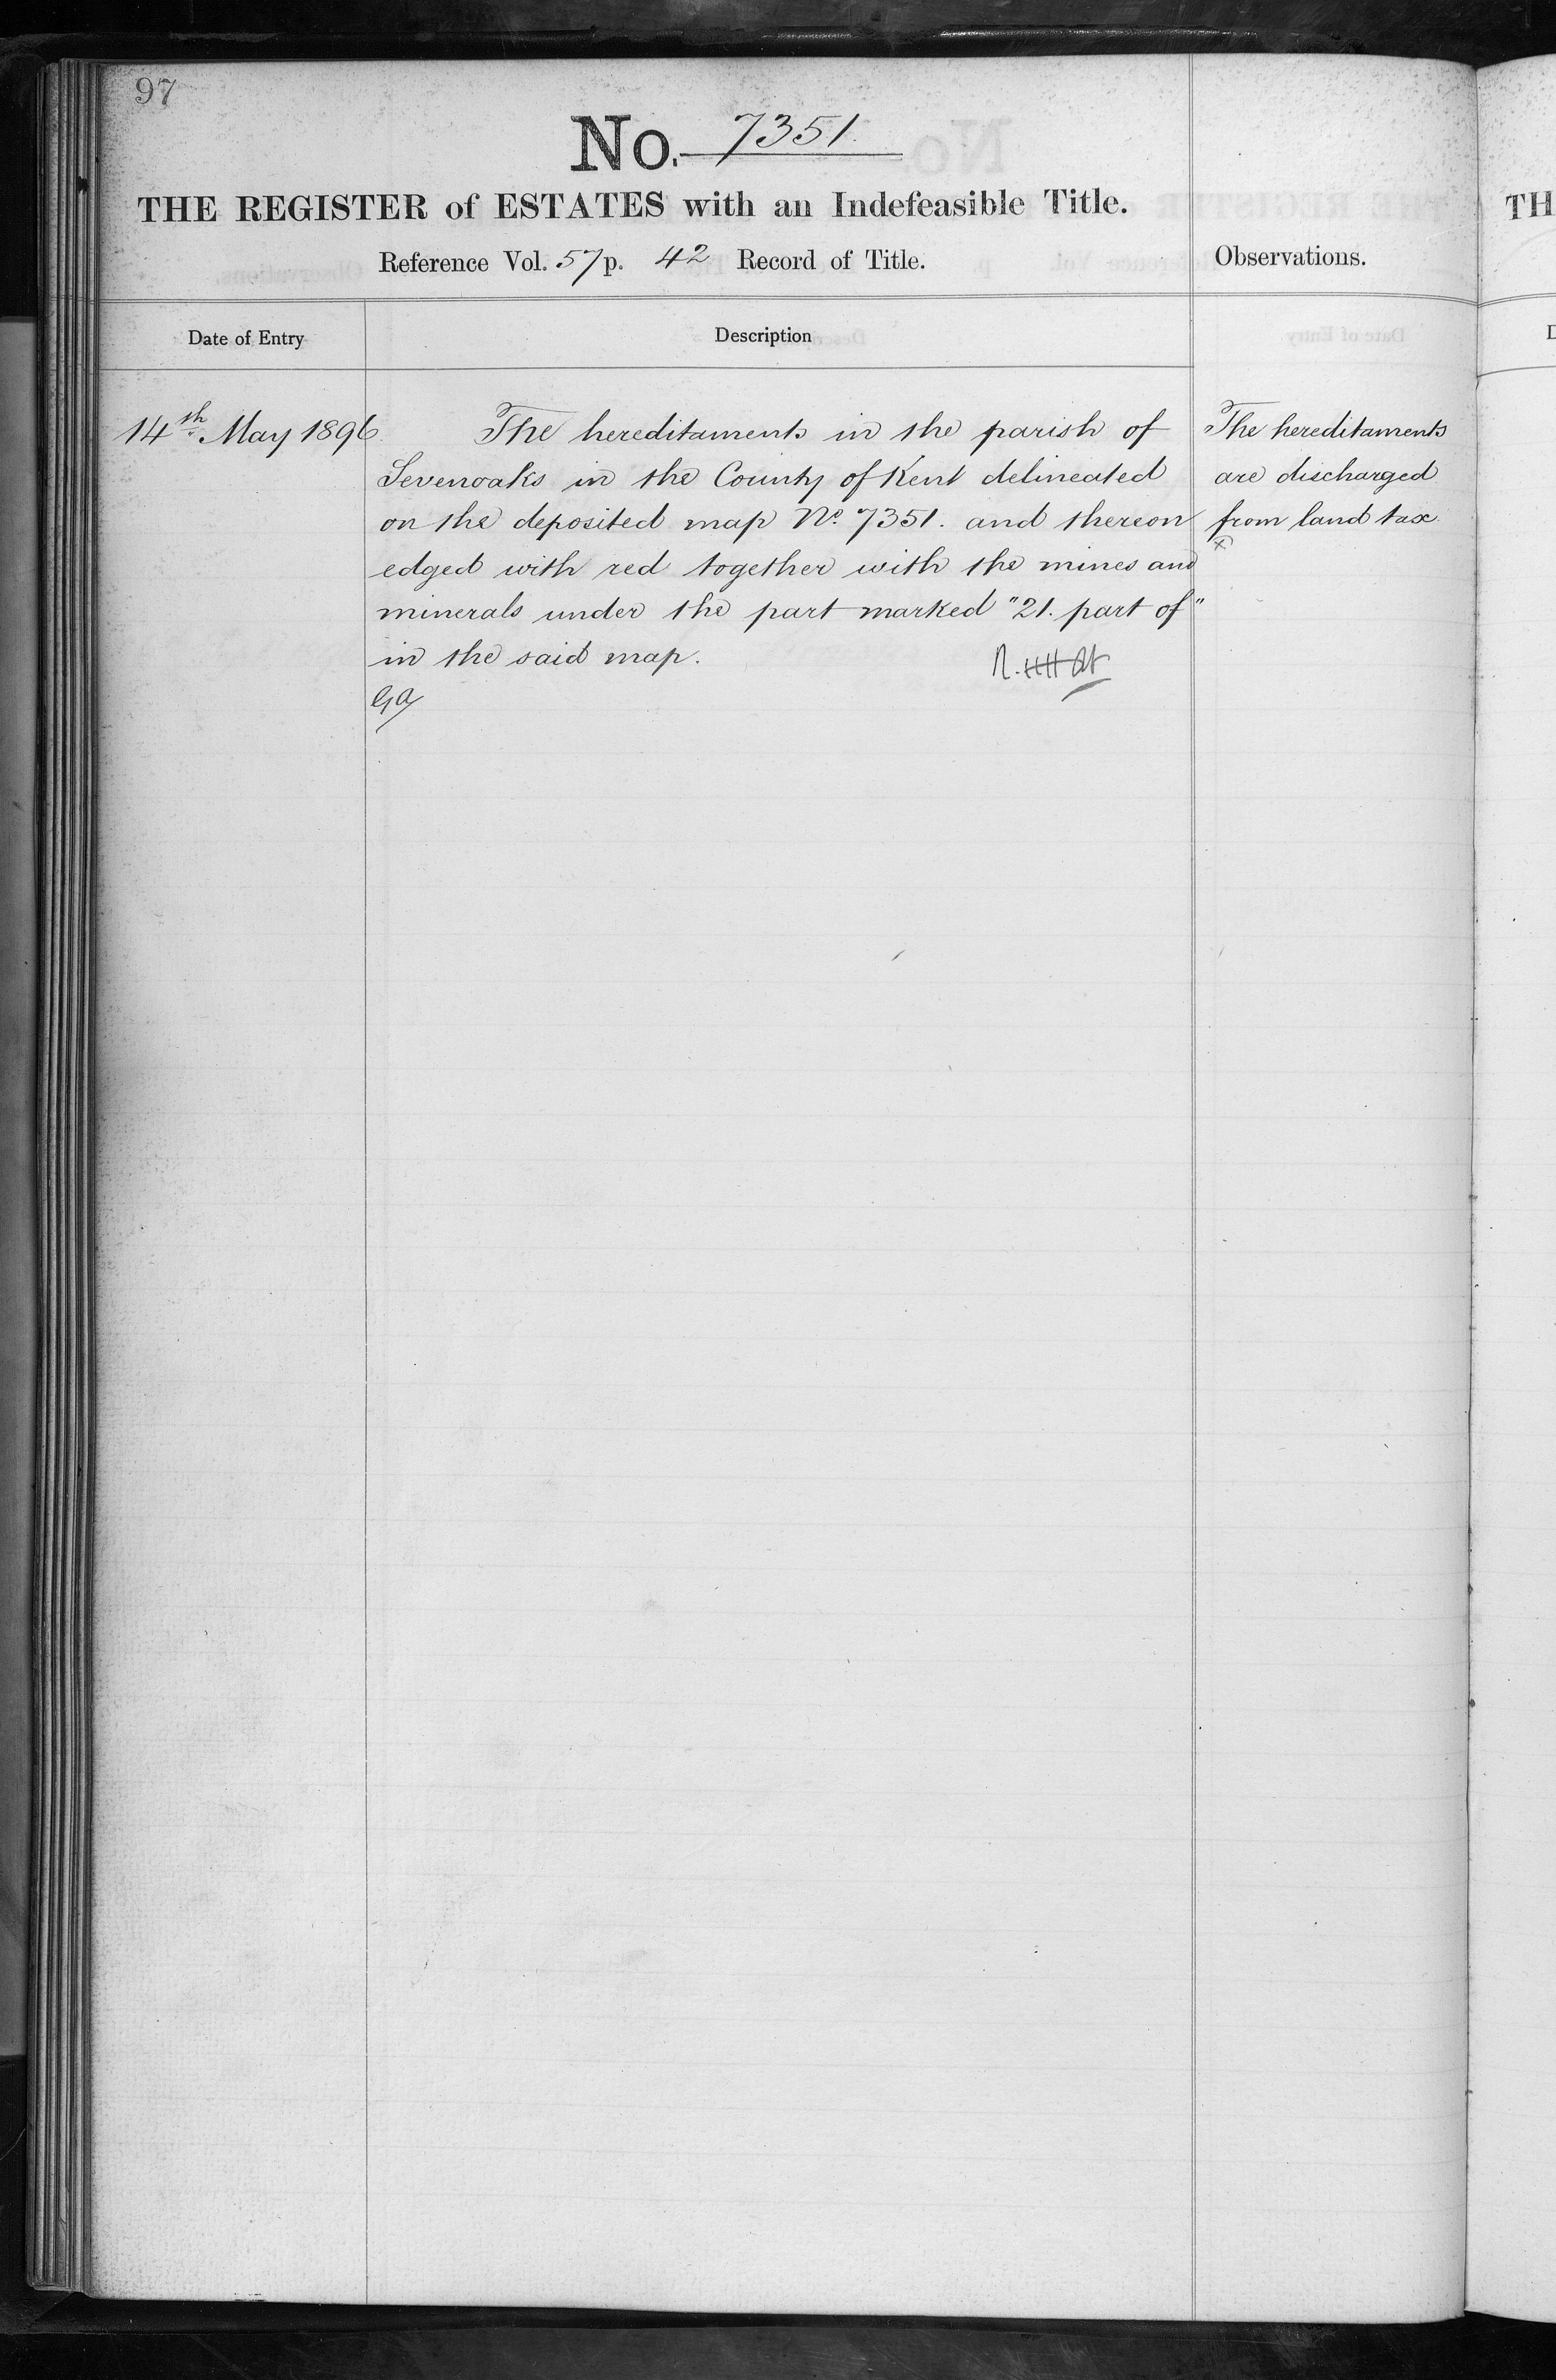 97
No. 7351.
THE REGISTER of ESTATES with an Indefeasible Title.
Reference Vol. 57 p. 42 Record of Title.
Observations.
Date of Entry
Description
14th May 1896.
The hereditaments in the parish of
Sevenoaks in the County of Kent delineated
on the deposited map No. 7351. and thereon
edged with red together with the mines and
minerals under the part marked "21. part of"
in the said map.
The hereditaments
are discharged
from land tax.
TH